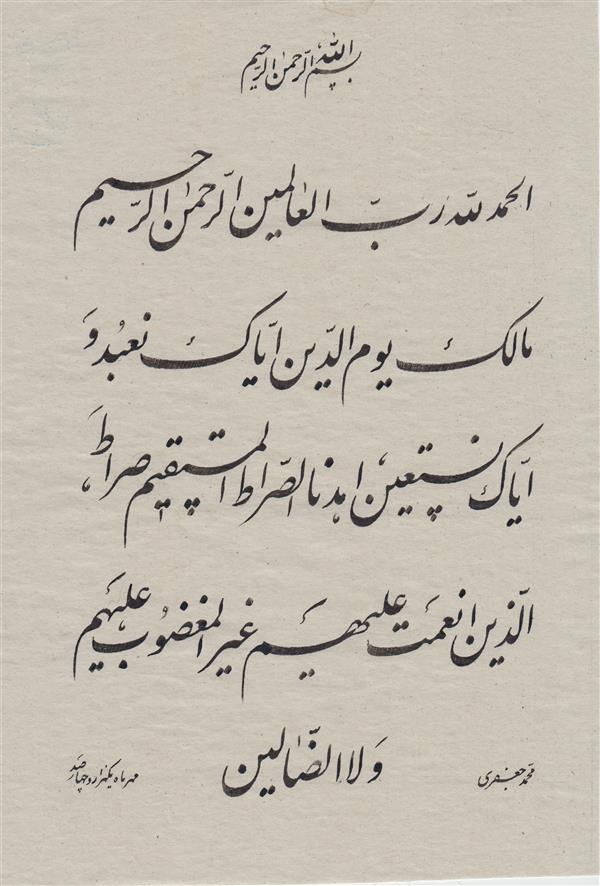 بسم الله الرحمن الرحیم
الحمد لله ربّ العالمین الرّحمن الرّحیم
مالک یوم الدّین ایّاک نعبُد وَ
ایّاک نستعین اهدنا الصّراط المستقیم صراطَ
الّذین انعمتَ علیهم غیر المغضوُب علیهم
وَلا الضّالین
محمّد جعفری
مهرماه یکهزار و چهارصد